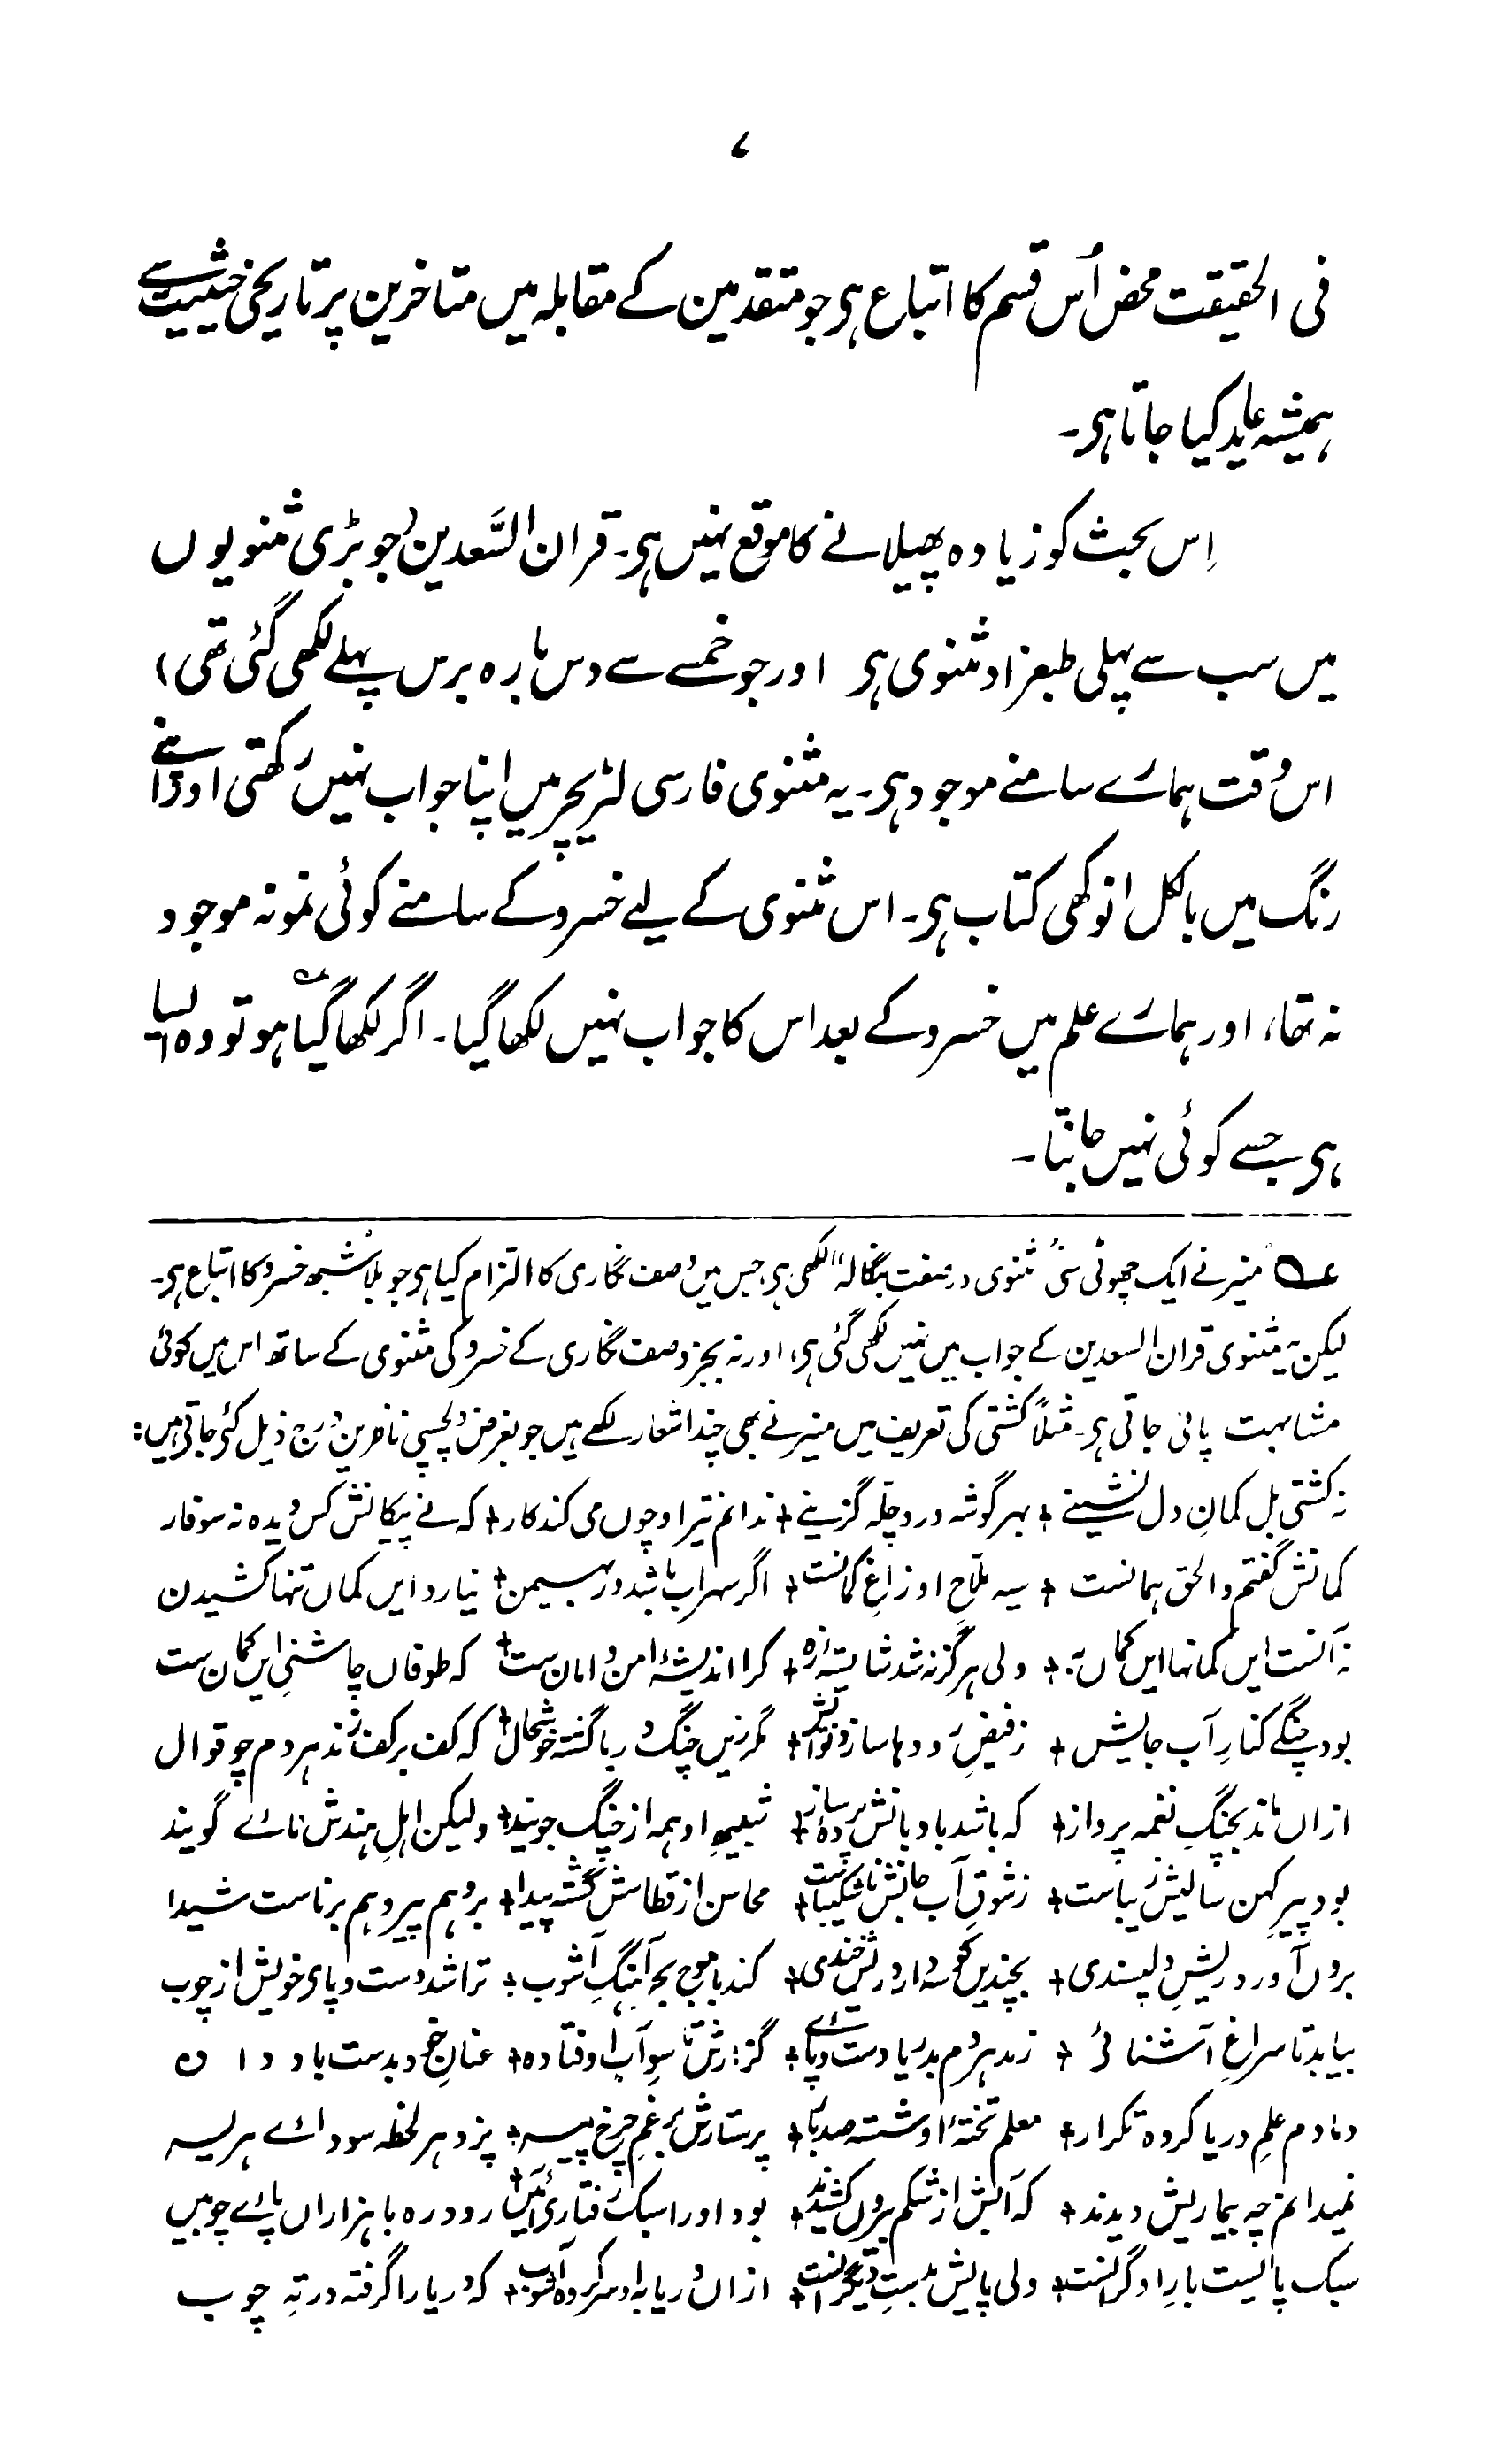 ۷
فی الحقیقت محض اُس قسم کا اتباع ہی جو متقدمین کے مقابلہ میں متاخرین پر تاریخی حیثیت سے
ہمیشہ عاید کیا جاتا ہی۔
اِس بحث کو زیادہ پھیلانے کا موقع نہیں ہی۔ قران السَّعدین (جو بڑی مثنویوں
میں سب سے پہلی طبعزاد مثنوی ہی اور جو خمسے سے دس بارہ برس پہلے لکھی گئی تھی)
اس وقت ہمارے سامنے موجود ہی۔ یہ مثنوی فارسی لٹریچر میں اپنا جواب نہیں رکھتی اور اپنے
رنگ میں بالکل انوکھی کتاب ہی۔ اس مثنوی کے لیے خسرو کے سامنے کوئی نمونہ موجود
نہ تھا، اور ہمارے علم میں خسرو کے بعد اس کا جواب نہیں لکھا گیا۔ اگر لکھا گیا ہو تو وہ ایسا
ہی جسے کوئی نہیں جانتا۔
منیر نے ایک چھوٹی سی مثنوی "در صفت بنگالہ" لکھی ہی، جس میں وصف نگاری کا التزام کیا ہی جو بلاشبہ خسرو کا اتباع ہی۔
لیکن یہ مثنوی قران السعدین کے جواب میں نہیں لکھی گئی ہی، اور نہ بجز وصف نگاری کے خسرو کی مثنوی کے ساتھ اس میں کوئی
مشابہت پائی جاتی ہی۔ مثلاً کشتی کی تعریف میں منیر نے بھی چند اشعار لکھے ہیں جو بغرض دلچسپی ناظرین درج ذیل کئے جاتے ہیں:
نہ کشتی بل کمانِ دل نشینے + بہر گوشہ در و چلّہ گزینے + ندانم تیر او چوں می کند کار + کہ نے پیکانش کس دیدہ نہ سوفار
کمانش گفتم و الحق ہمانست + سیہ ملّاحِ او زاغِ کمانست + اگر سہراب باشد ور بہمن + نیارد ایں کماں تنہا کشیدن
ولی ہرگز نہ شد شایستۂ زہ + کرا اندیشۂ امن و امان ست + کہ طوفاں چاشنیِ ایں کمان ست
بود چنگے کنارِ آب جایش + ز فیضِ رودہا ساز و نوایش + مگر زیں چنگ دریا گشتہ خوشحال + کہ کف بر کف زند ہر دم چو قوال
ازاں ماند بچنگِ نغمہ پرداز + کہ باشد بادبانش پردۂ ساز + شبیہِ او ہمہ از چنگ جویند + ولیکن اہلِ ہندش نائے گویند
بود پیرِ کہن سالیش زیباست + ز شوقِ آب جانش ناشکیباست + محاسن از قطاسش گشتہ پیدا + برو ہم پیر و ہم برناست شیدا
بروں آورد ریشِ دلپسندی + بچندیں گوسہ دارد ریش خندی + کند با موج بحر آہنگِ آشوب + تراشد دست و پای خویش از چوب
بیابد تا سراغِ آشنائی + زند ہر دم بدریا دست و پائے + گزارش تا سوِ آب اوفتادہ + عنانِ خود بدست باد دادہ
دمادم علمِ دریا کردہ تکرار + معلم تختۂ او شستہ صد بار + پرستارش ز غمِ چرخ پیسہ + پزد ہر لحظہ سودائے ہریسہ
نمیدانم چہ بیماریش دیدند + کہ آبش از شکم بیروں کشیدند + بود او را سبک رفتاری آئیں + رود رہ با ہزاراں پائے چوبیں
سبک پا نیست بارِ او گرانست + ولی پایش بدستِ دیگرانست + ازاں دریا بہ او سر کردہ آشوب + کہ دریا را گرفتہ در تہِ چوب